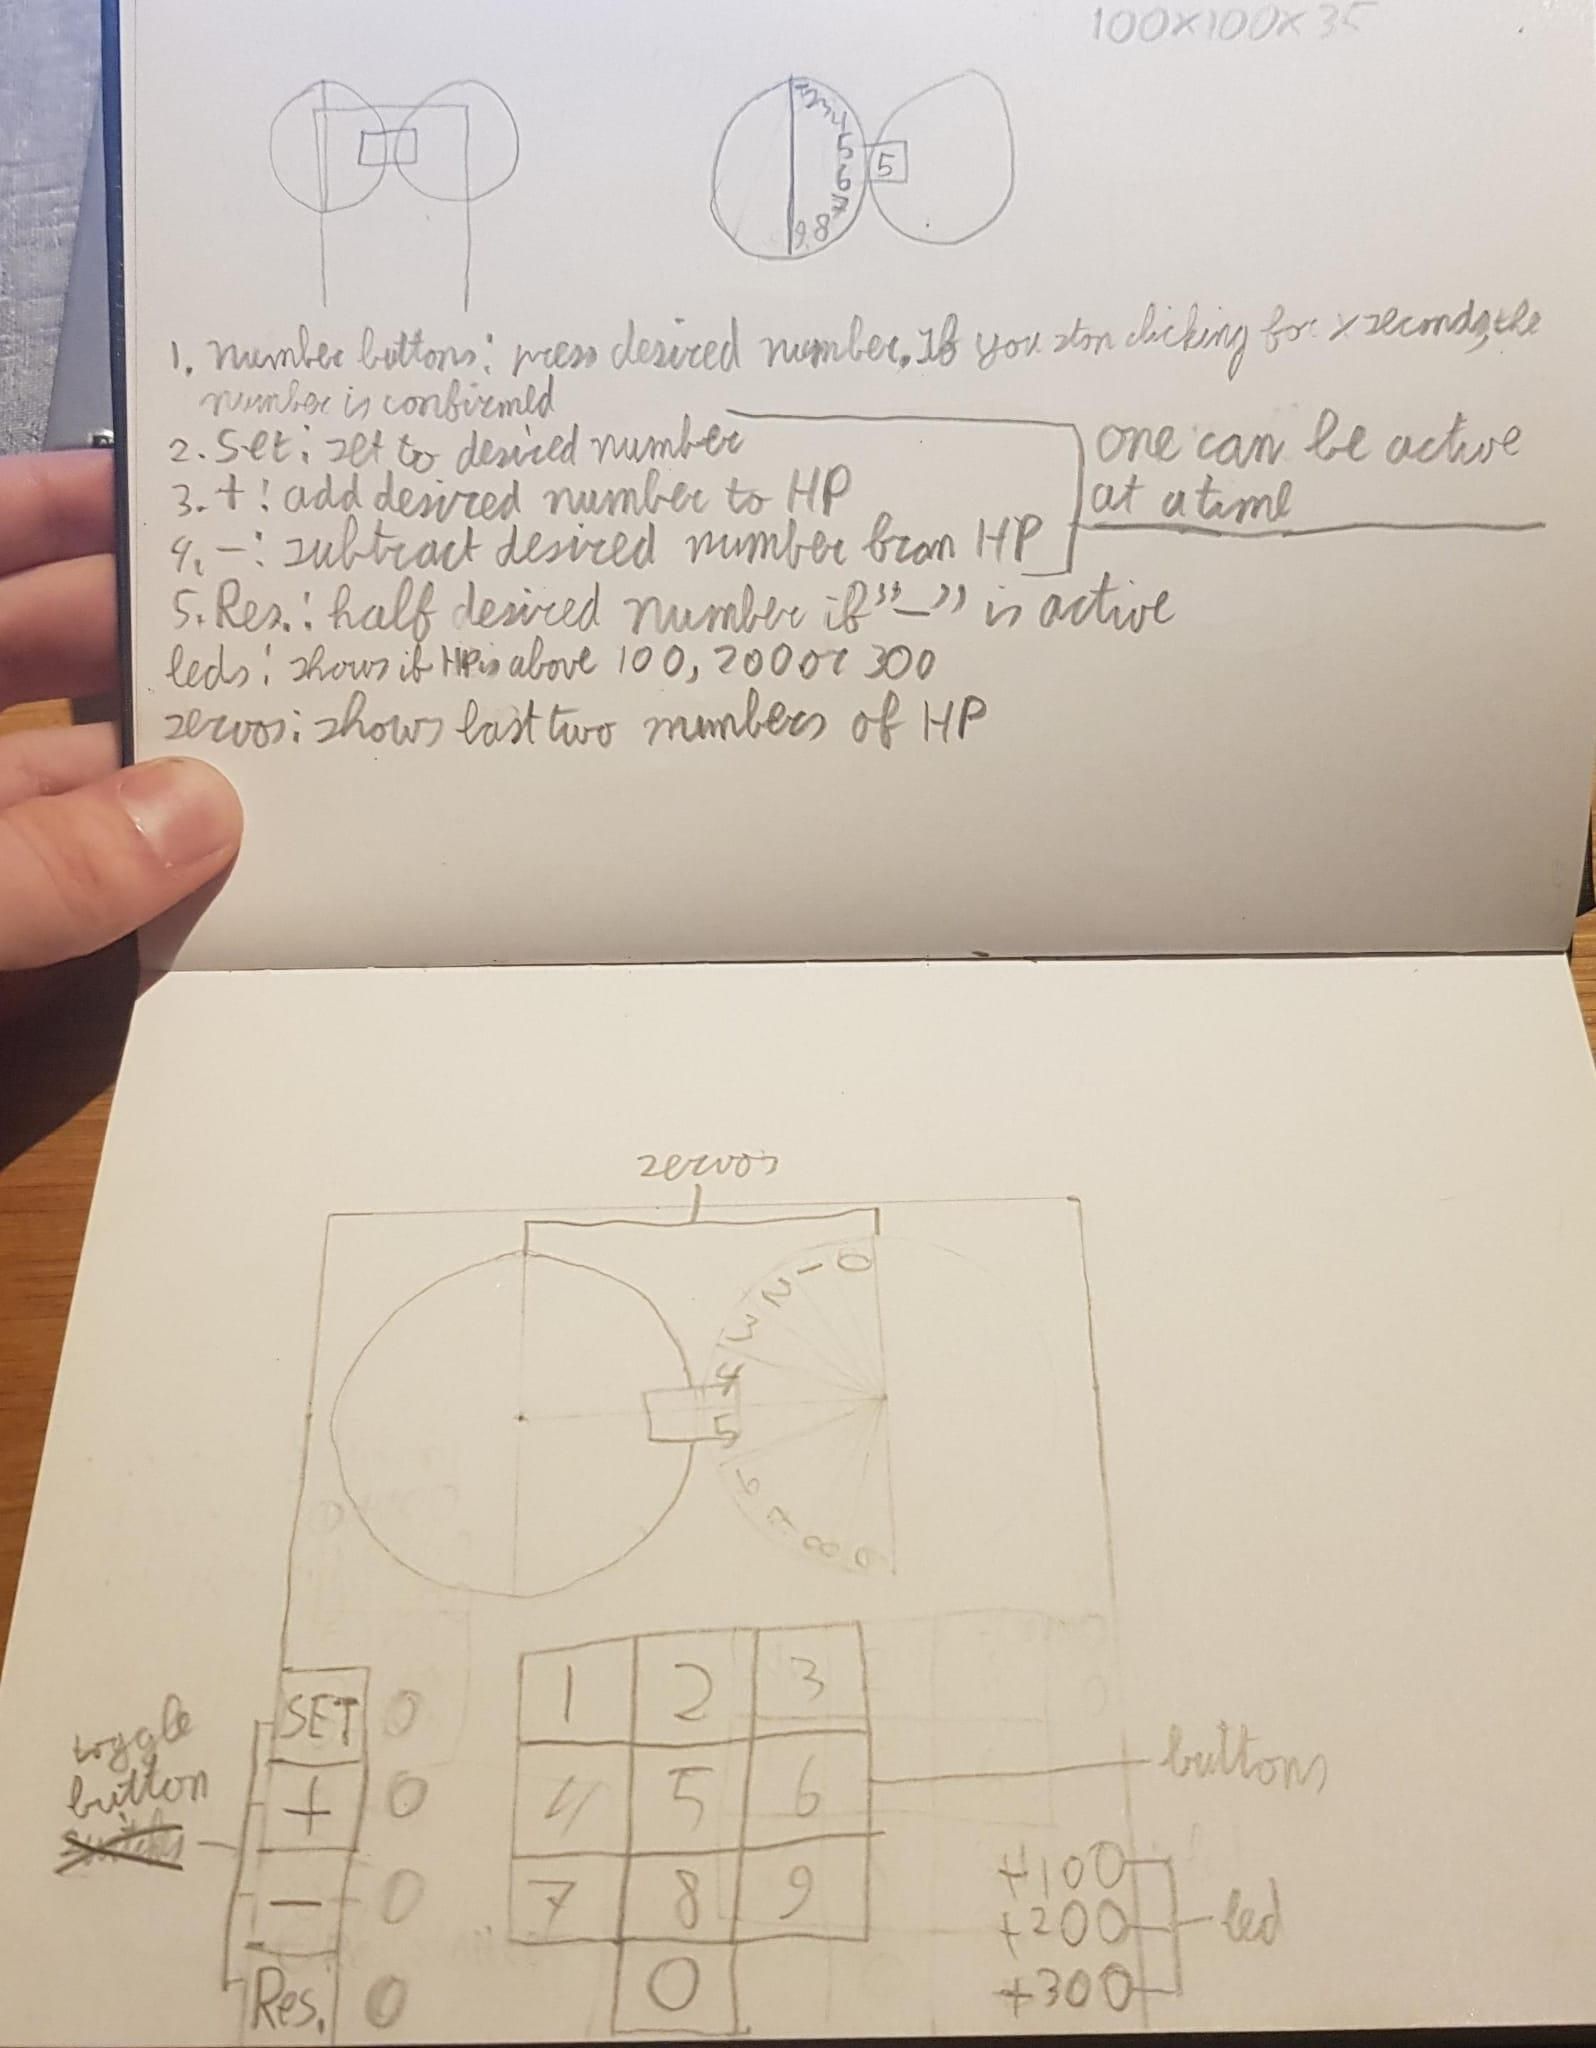 100x100x35
5
5
6
7
8
9
1. number buttons: press desired number. If you stop clicking for x seconds, the
number is confirmed
2. Set: set to desired number
3. +: add desired number to HP
4. -: subtract desired number from HP
one can be active
at a time
5. Res.: half desired number if "-" is active
leds: shows if HP is above 100, 200 or 300
servos: shows last two numbers of HP
servos
0
1
2
3
4
5
6
7
8
9
toggle
button
SET
+
-
Res.
1 2 3
4 5 6
7 8 9
0
buttons
+100
+200
+300
led